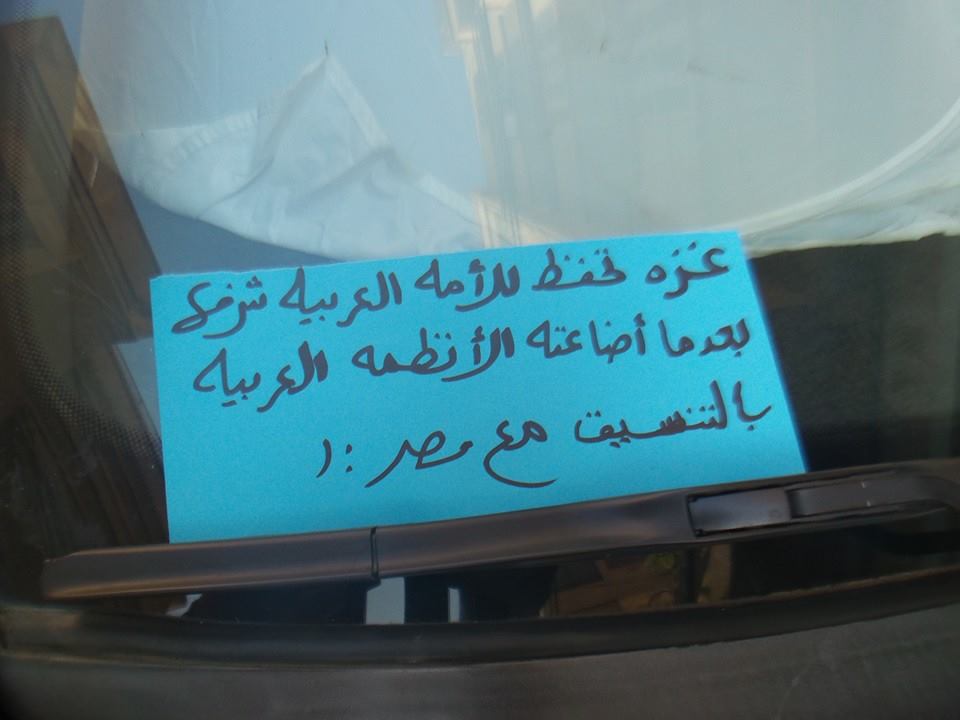 غزه تحفظ للأمه العربيه شرفها
بعدما أضاعته الأنظمه العربيه
بالتنسيق مع مصر :(